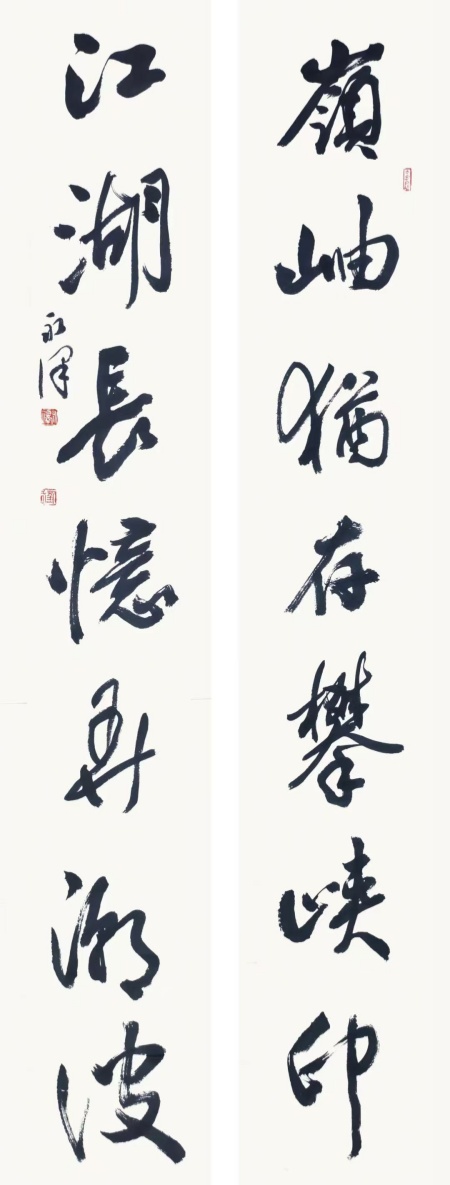 嶺岫猶存攀峽印
江湖長憶弄潮波
永澤